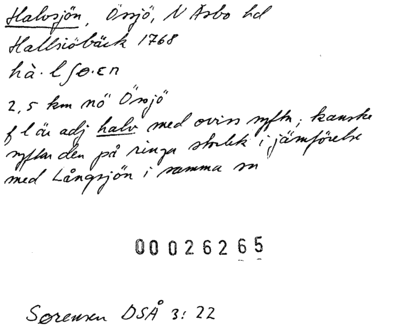 Halvsjön, Össjö, N Åsbo hd
Hallsiöbäck 1768
hà·lʃø·ɛn
2,5 km nö Össjö
fl är adj halv med oviss syftn; kanske
syftar den på ringa storlek i jämförelse
med Långsjön i samma sn
00026265
Sørensen DSÅ 3: 22